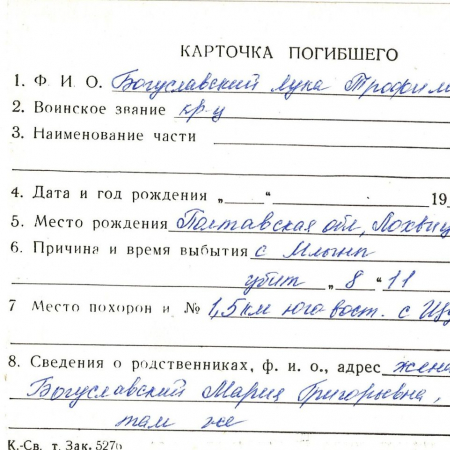 КАРТОЧКА ПОГИБШЕГО
1. Ф. И. О. Богуславский Лука Трофим
2. Воинское звание кр-ц
3. Наименование части
4. Дата и год рождения „ “ 19
5. Место рождения Полтавская обл, Лохвиц
6. Причина и время выбытия с Млыны
убит „ 8 “ 11
7 Место похорон и № 1,5 км юго вост. с
8. Сведения о родственниках, ф. и. о., адрес жена
Богуславский Мария Григорьевна,
там же
К.-Св. т. Зак. 527